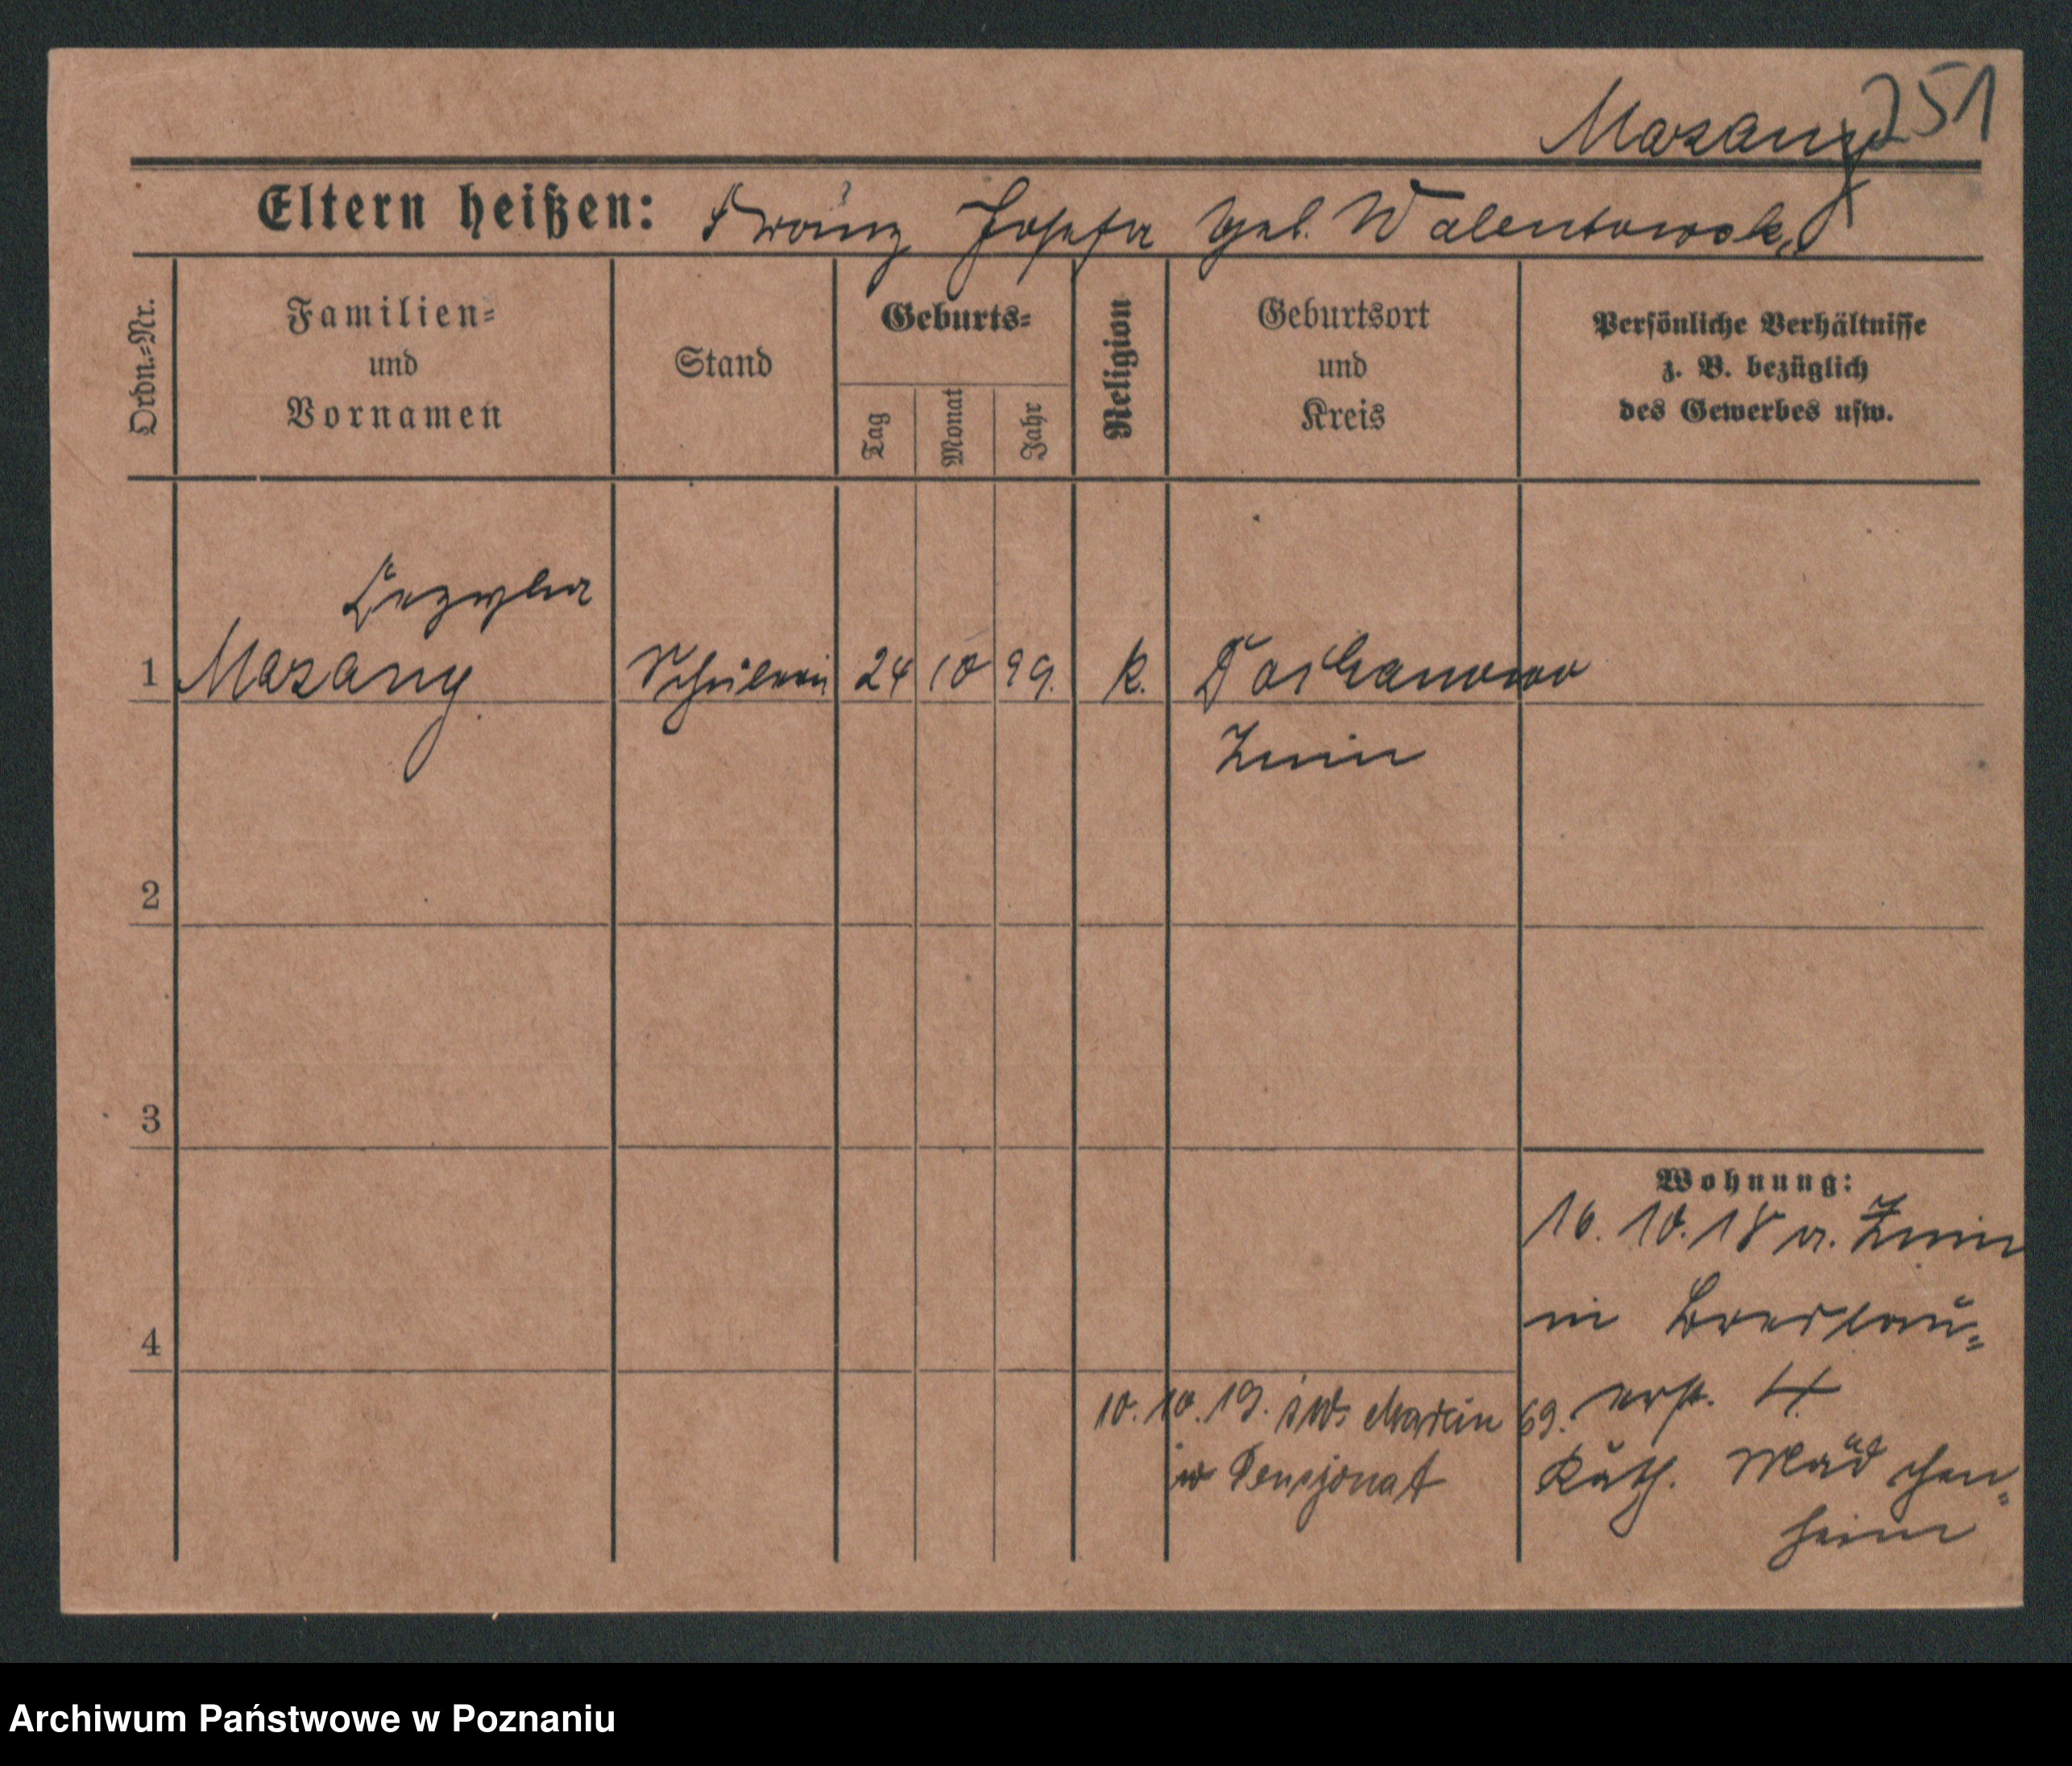 Mazany 251
Eltern heißen: Franz Josefa geb. Walentowska
Ordn.=Nr.
Familien=
und
Vornamen
Stand
Geburts=
Tag
Monat
Jahr
Religion
Geburtsort
und
Kreis
Persönliche Verhältnisse
z. B. bezüglich
des Gewerbes usw.
1 Mazany Schülerin 24 10 99. k.
Znin
2
3
4
Wohnung:
16. 10. 18 v. Znin
in Breslau=
erst. 4
Kath. Mädchen=
heim
10. 10. 19. św. Marcin 69.
w Pensjonat
Archiwum Państwowe w Poznaniu